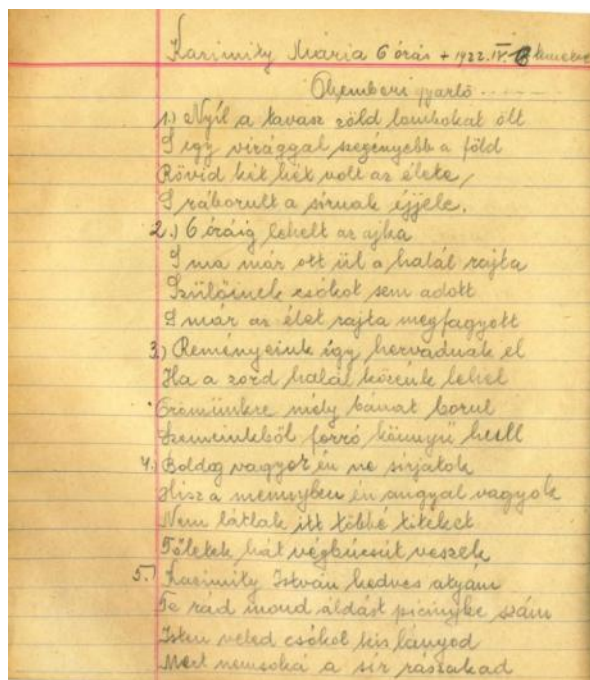 Kasimity Mária 6 órás + 1922. IV.
Óh emberi gyarló ........
1.) Nyíl a tavasz zöld lombokat ölt
S így virággal szegényebb a föld
Rövid két hét volt az élete,
S ráborult a sírnak éjjele.
2.) 6 óráig lehelt az ajka
S ma már ott ül a halál rajta
Szülőinek csókot sem adott
S már az élet rajta megfagyott
3.) Reményeink így hervadnak el
Ha a zord halál közénk lehel
Örömünkre mély bánat borul
Szemeinkből forró könnyű hull
4.) Boldog vagyok én ne sírjatok
Hisz a mennyben én angyal vagyok
Nem látlak itt többé titeket
Tőletek hát végbúcsút veszek
5.) Kasimity István kedves atyám
Te rád mond áldást picinyke szám
Isten veled csókol kis lányod
Mert nemsoká a sír rászakad